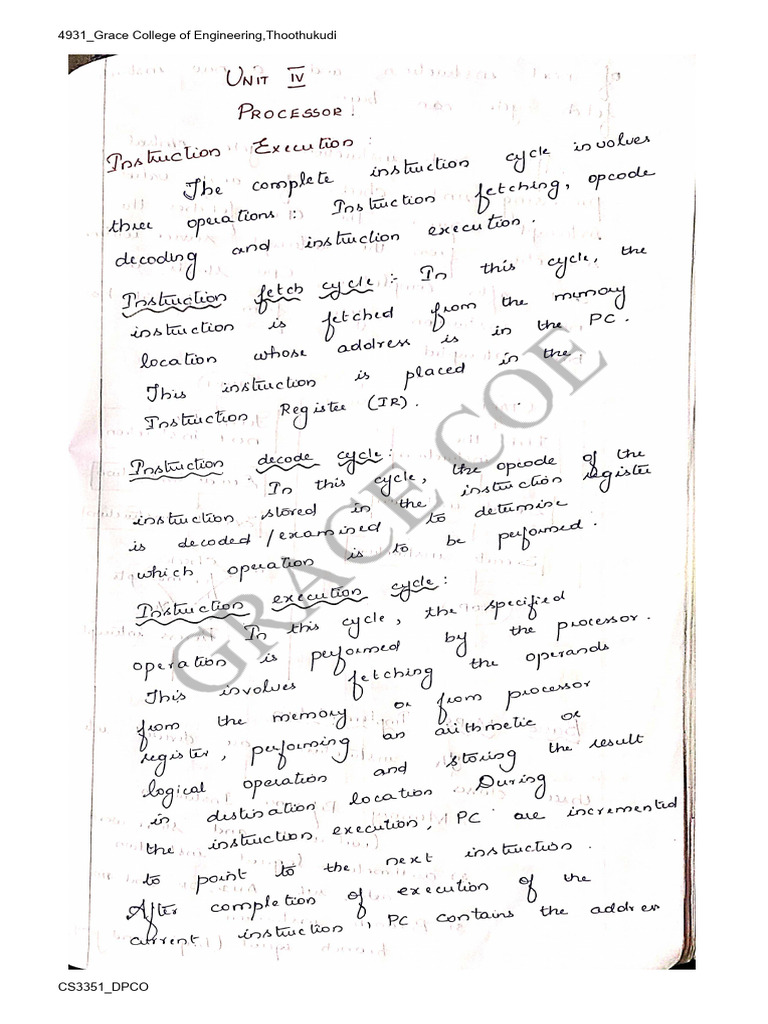 4931_Grace College of Engineering,Thoothukudi
UNIT IV
PROCESSOR:
Instruction Execution:
The complete instruction cycle involves
three operations: Instruction fetching, opcode
decoding and instruction execution.
Instruction fetch cycle:- In this cycle, the
instruction is fetched from the memory
location whose address is in the PC.
This instruction is placed in the
Instruction Register (IR).
Instruction decode cycle:
In this cycle, the opcode of the
instruction stored in the instruction register
is decoded/examined to determine
which operation is to be performed.
Instruction execution cycle:
In this cycle, the specified
operation is performed by the processor.
This involves fetching the operands
from the memory or from processor
register, performing an arithmetic or
logical operation and storing the result
in destination location. During
the instruction execution, PC are incremented
to point to the next instruction.
After completion of execution of the
current instruction, PC contains the addres
GRACE COE
CS3351_DPCO